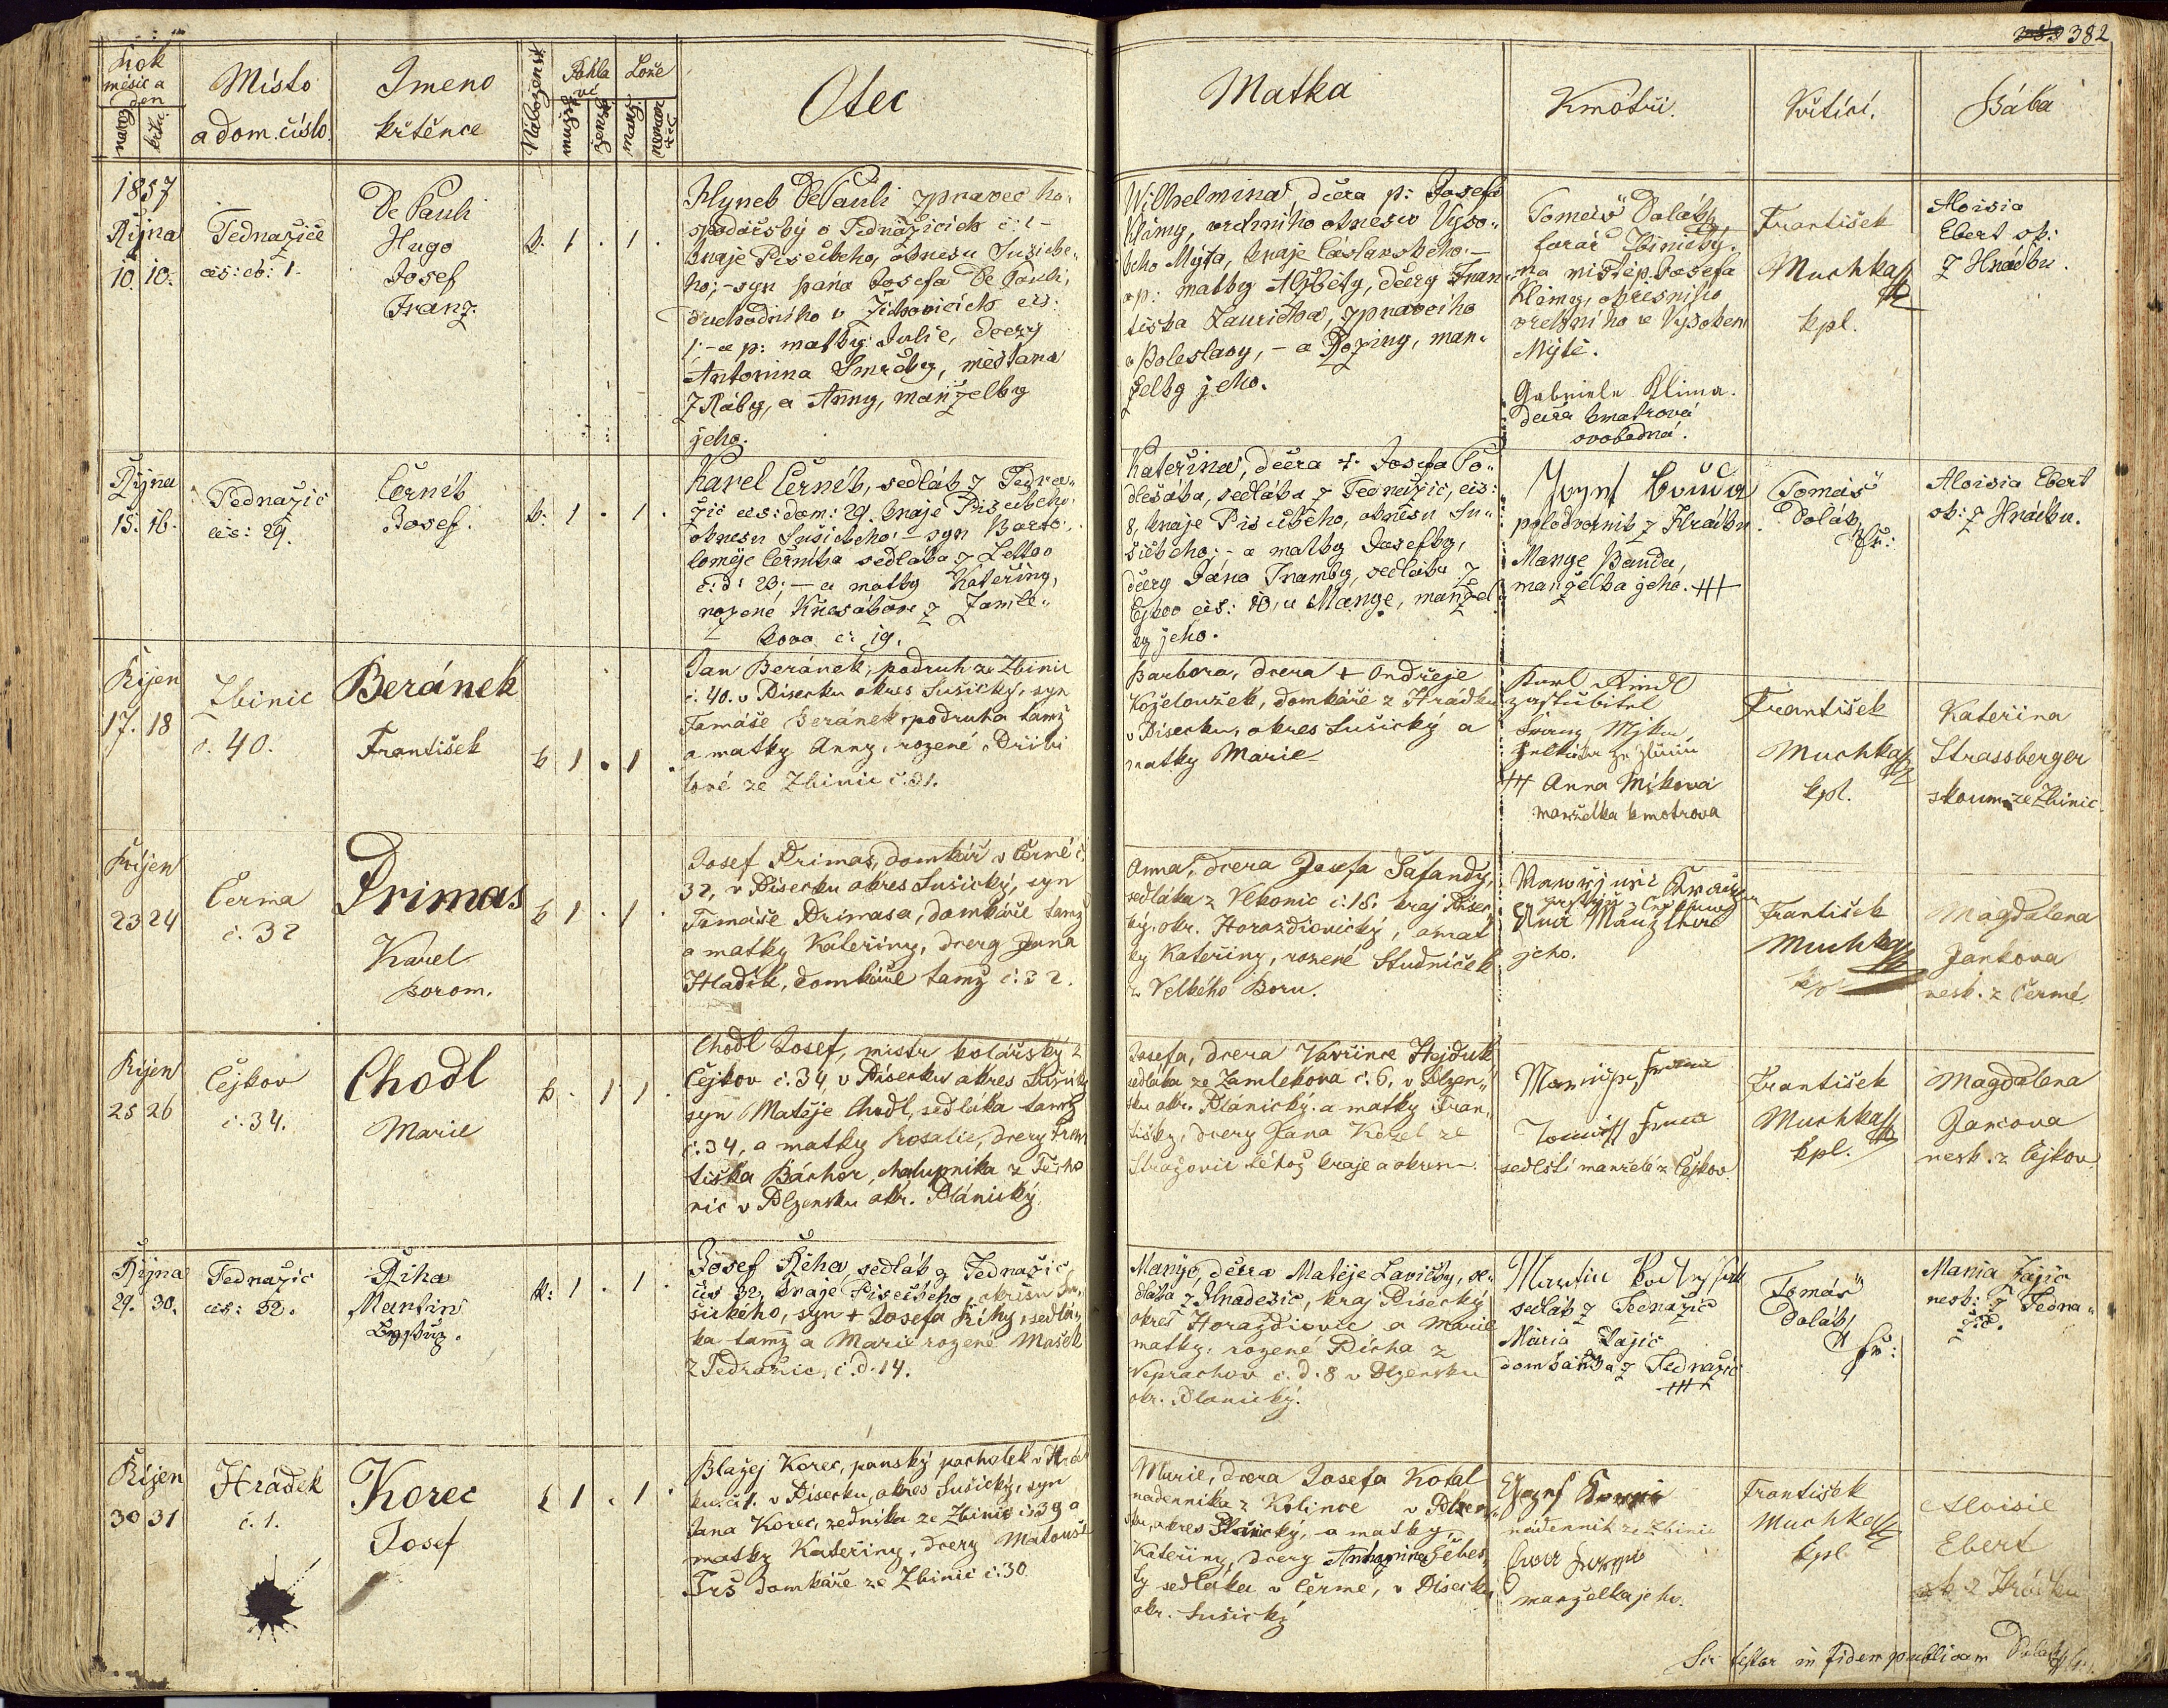 382
Rok
měsíc a
den
naroz.
křtu
Místo
a dom. číslo.
Jmeno
křtěnce
Náboženst.
Pohla
ví
Lože
mužské
ženské
Otec
Matka
Kmotři.
Křtící.
Bába
1857
Řijna
10. 10.
Tednažice
čís: 1.
De Pauli
Hugo
Josef
Franz.
k. 1 . 1 .
Hynek De Pauli zpravec ho-
spodářský v Tednažicích č: 1-
kraje Píseckého, okresu Sušicke-
ho; - syn pána Josefa De Pauli,
duchodního v Žichovicích čís:
1: - a p: matky Julie, dcery
Antonina Smrčky, měšťana
z Ráby, a Anny, manželky
jeho.
Wilhelmina, dcera p: Josefa
Klimy, vrchního okresu Vyso-
kého Mýta, kraje Čáslavského. -
a p: matky Alžběty, dcery Fran-
tiška, zpravcího
v Boleslavy, - a Roziny, man-
želky jeho.
Tomáš Dolák,
farář Zbinický.
na místě p. Josefa
Klimy, okresního
vrchního ve Vysokem
Mýtě.
Gabriele Klima.
dcera kmotrová
svobodná.
František
Muchka
kpl.
Aloisia
Ebert ob:
z Hrádku.
Řijna
15. 16.
Tednažic
čís: 29.
Černík
Josef.
k: 1 . 1 .
Karel Černík, sedlák z Tedra-
žic čís: dom: 29. kraje Píseckého,
okresu Sušického: - syn Barto-
loměje Černíka sedláka z
č: d: 23: - a matky Kateřiny,
rozené z Zamle-
kova č: 19.
Kateřina, dcera +. Josefa Po-
dlešáka, sedláka z Tednažic, čís:
8, kraje Píseckého, okresu Su-
šického; - a matky Josefky,
dcery Jána, sedláka z
Čejkov čís: 10, a Mange, manžel-
ky jeho.
poledvorník z Hrádku.
Mange Panda,
manželka jeho. +++
Tomáš
Dolák
fr:
Aloisia Ebert
ob: z Hrádku.
Říjen
17. 18
Zbinic
č. 40.
Beránek
František
k 1 . 1 .
Jan Beránek, podruh ze Zbinic
č. 40. v Písecku okres Sušický, syn
Tomáše Beránek, podruha tamž
a matky Anny, rozené
ze Zbinic č. 31.
Barbora, dcera + Ondřeje
Koželoužek, domkáře z Hrádku
v Písecku, okres Sušický a
matky Marie
Karl
+++ Anna Míková
manželka kmotrova
František
Muchka
kpl.
Kateřina
Strassberger
skoum. ze Zbinic
Říjen
23 24
Čermá
č. 32
Primas
Karel
Borom.
k 1 . 1 .
Josef Primas, domkář v Čermé č.
32, v Písecku okres Sušický, syn
Tomáše Primasa, domkáře tamž
a matky Kateřiny, dcery Jana
Hladík, domkáře tamž č. 32.
Anna, dcera Josefa Šafandy,
sedláka z Vlkonic č. 18. kraj Písec-
ký, okr. Horazdiovický, a mat
ky Kateřiny, rozené Studniček
z Velkého Boru.
jeho.
František
Muchka
kpl
Magdalena
Jankova
nesk. z Čermé
Říjen
25 26
Čejkov
č. 34.
Chodl
Marie
k . 1 1 .
Chodl Josef, mistr kolářský z
Čejkov č. 34 v Písecku okres Sušický
syn Matěje Chodl, sedláka tamž
č. 34, a matky Rosalie, dcery Fran
tiška Báchor, chalupníka z Těcho
nic v Plzensku okr. Plánický.
Josefa, dcera Vavřince Hejduk
sedláka ze Zamlekova č. 6. v Plzen-
sku okr. Plánický. a matky Fran-
tišky, dcery Jana Kozel ze
Stražovic téhož kraje a okresu.
sedlští manželé z Čejkov
František
Muchka
kpl.
Magdalena
Jancova
nesk. z Čejkov
Řijna
29. 30.
Tednažic
čís: 32.
Řiha
Martin
k: 1 . 1 .
Josef Řeha, sedlák z Tednažic
čís 32, kraje Píseckého, okresu Su-
šického, syn + Josefa Říhy, sedlá-
ka tamž a Marie rozené Mašek
z Tedražic, č. d. 14.
Manyo, dcera Matěje Lavičky, se-
dláka z Hnadežic, kraj Písecký
okres Horazdiovic a Marie
matky, rozené Pícha z
Neprachov č. d. 8 v Plzensku
okr. Planický.
Martin
sedlák z Tednažic
Maria Zajíc
domkářka z Tednažic
+++
Tomáš
Dolák
fr:
Maria Zajíc
nesk: z Tedna-
žic.
Říjen
30 31
Hrádek
č. 1.
Korec
Josef
k 1 . 1 .
Blažej Korec, panský pacholek v Hrád
ku č. 1. v Písecku, okres Sušický, syn
Jana Korec, zedníka ze Zbinic č. 39 a
matky Kateřiny, dcery Matouše
Trš domkáře ze Zbinic č. 30
Marie, dcera Josefa Kotal
nadenníka z Kolince v Plzen-
sku, okres Plánický, a matky
Kateřiny, dcery Antonína Šebes-
ty sedláka v Čermé, v Písecku,
okr. Sušický
nádenník ze Zbinic
manželka jeho.
František
Muchka
kpl
Aloisie
Ebert
zk z Hrádku
Sic testor in fidem publicam Dolák